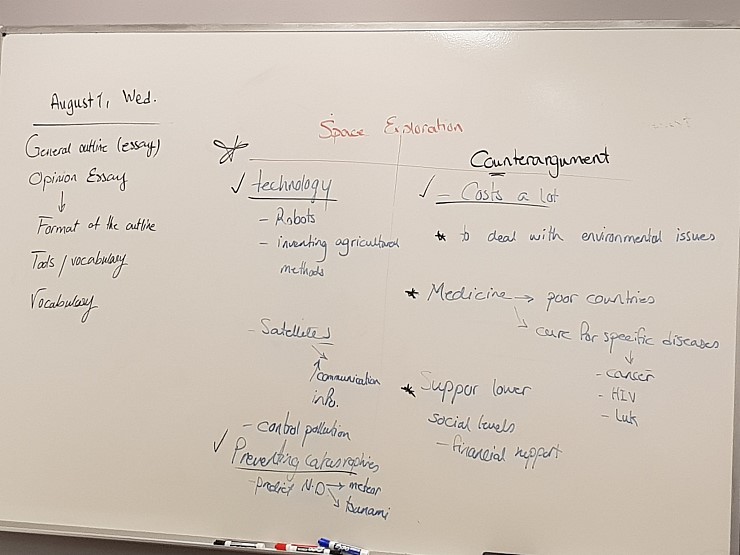 August 7, Wed.
General outline (essay)
Opinion Essay
↓
Format of the outline
Tools / vocabulary
Vocabulary
Space Exploration
✓ technology
- Robots
- inventing agricultural
methods
- Satellites
communication
info.
- control pollution
✓ Preventing catastrophies
- predict N.D → meteor
↘ tsunami
Counterargument
✓ - Costs a lot
* to deal with environmental issues
* Medicine → poor countries
↘ cure for specific diseases
↓
- cancer
- HIV
- Luk
* Suppor lower
social levels
- financial support